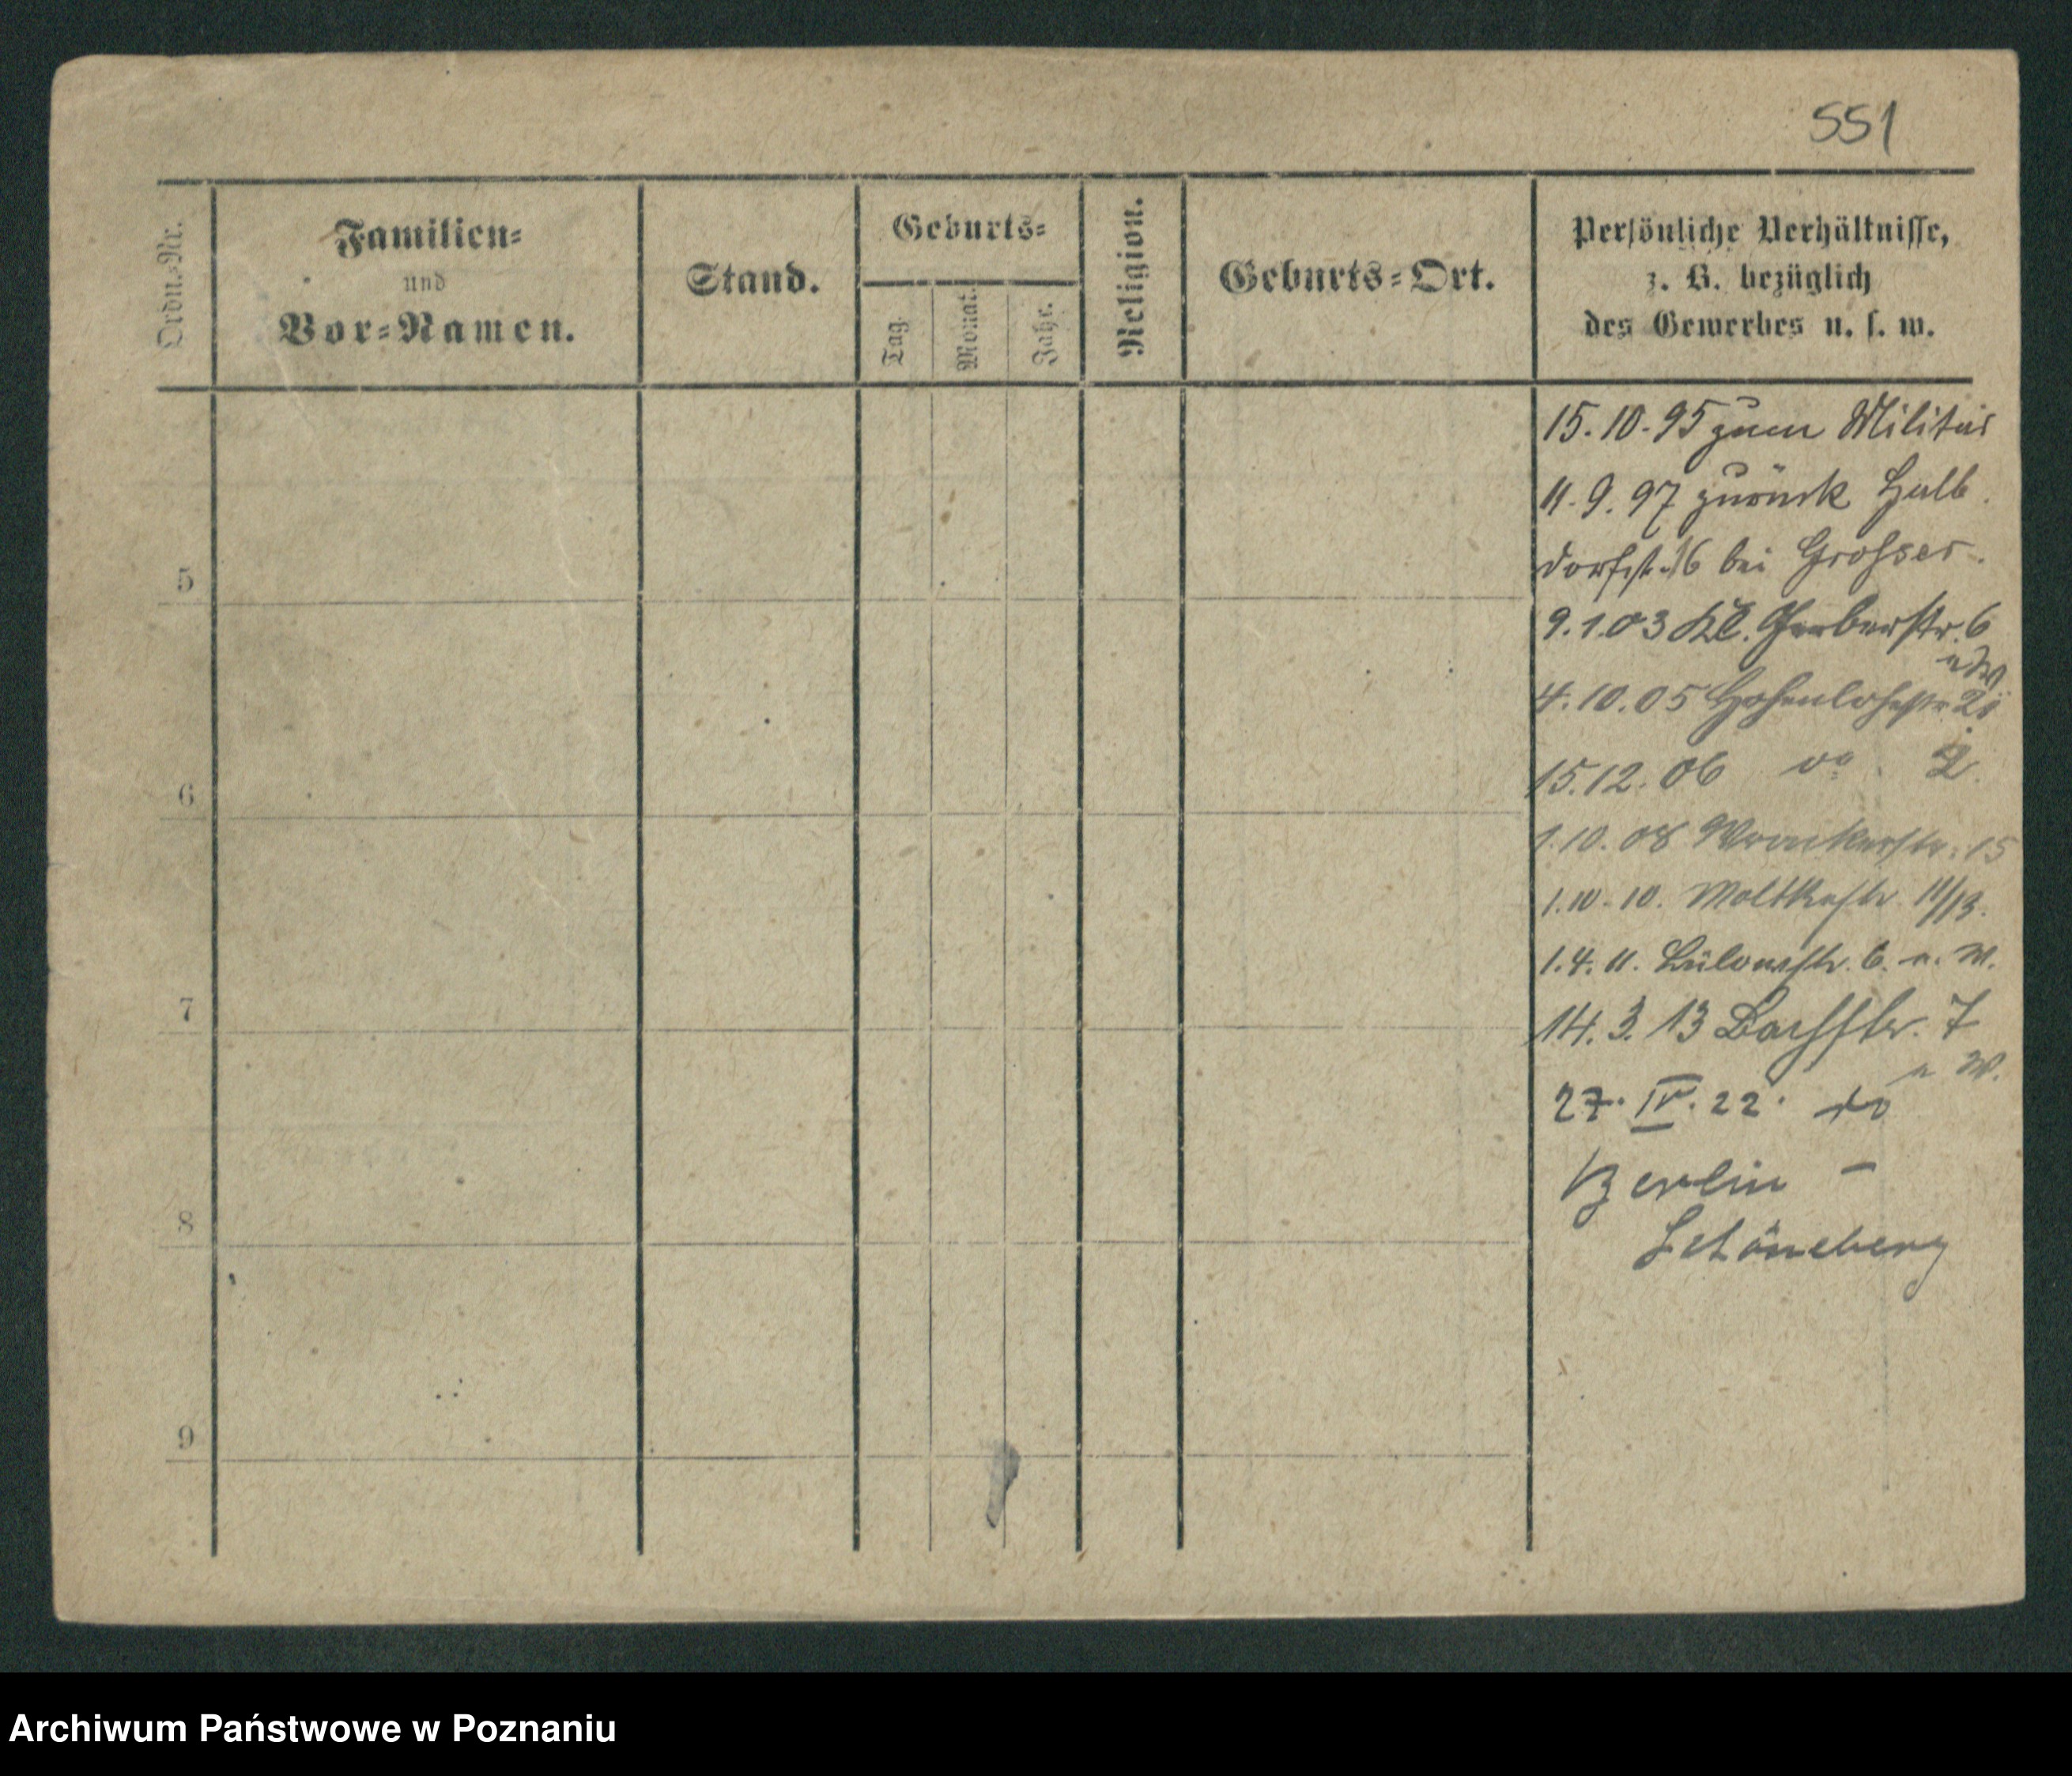 551
Ordn.-Nr.
Familien-
und
Vor-Namen.
Stand.
Geburts-
Tag.
Monat.
Jahr.
Religion.
Geburts-Ort.
Persönliche Verhältnisse,
z. B. bezüglich
des Gewerbes u. s. w.
15. 10. 95 zum Militär
11. 9. 97 zurück Halb
dorfstr. 16 bei Grosser.
9. 1. 03 Kl. Gerberstr. 6
4. 10. 05 Hohenlohestr.
15. 12. 06 do. 2.
1. 10. 08 Wronkerstr. 15
1. 10. 10. Moltkestr. 11/13.
1. 4. 11. Bülowstr. 6. n. W.
14. 3. 13 Bachstr. 7
n W.
27. IV. 22. do
Berlin -
Schöneberg
5
6
7
8
9
Archiwum Państwowe w Poznaniu